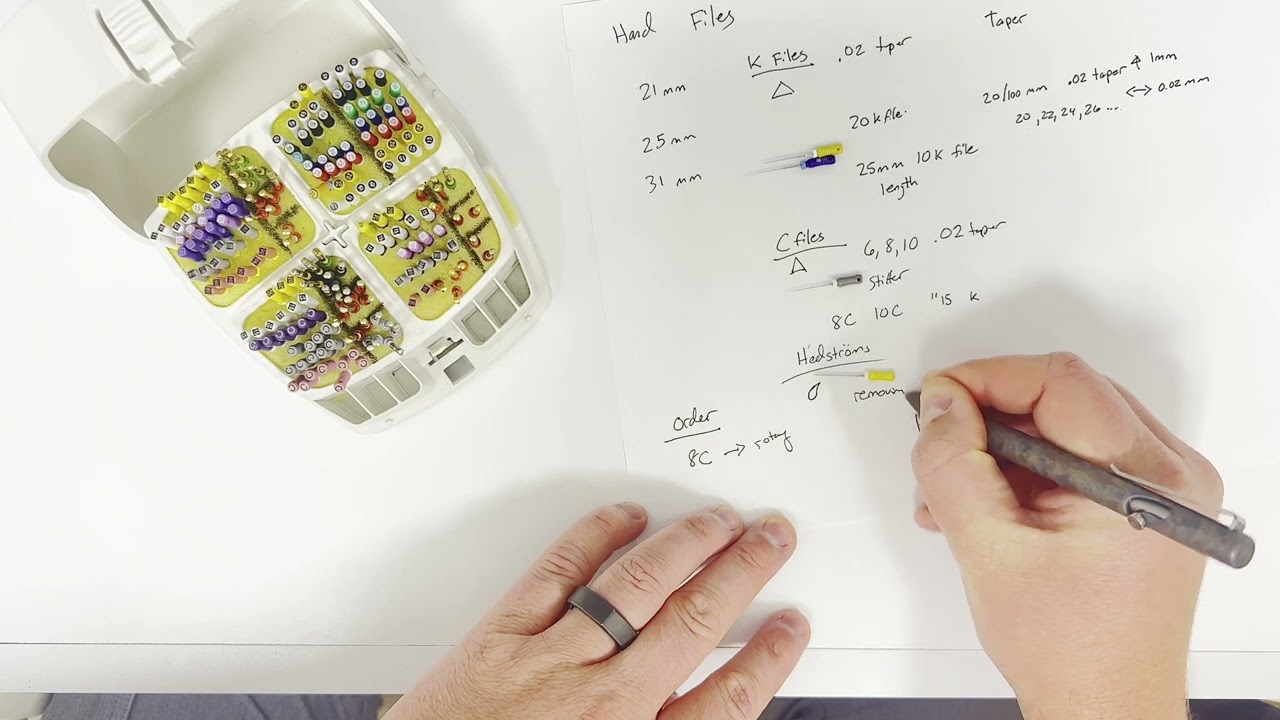 Hand Files
taper
K Files .02 taper
21 mm
20/100 mm .02 taper 1mm
20, 22, 24, 26 ... ↔ 0.02 mm
20 K file
25 mm
25mm 10 K file
length
31 mm
C files 6, 8, 10 .02 taper
stiffer
8C 10C "15 K
Hedströms
removing
Order
8C → rotary